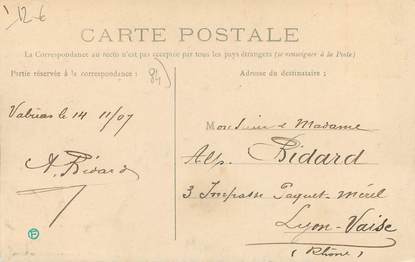 12-6
CARTE POSTALE
La Correspondance au recto n'est pas acceptée par tous les pays étrangers (se renseigner à la Poste)
Partie réservée à la correspondance :
84
Adresse du destinataire :
Valréas le 14 11/07
A. Bidard
Monsieur & Madame
Alp. Bidard
3 Impasse Paquet-Méril
Lyon-Vaise
(Rhône)